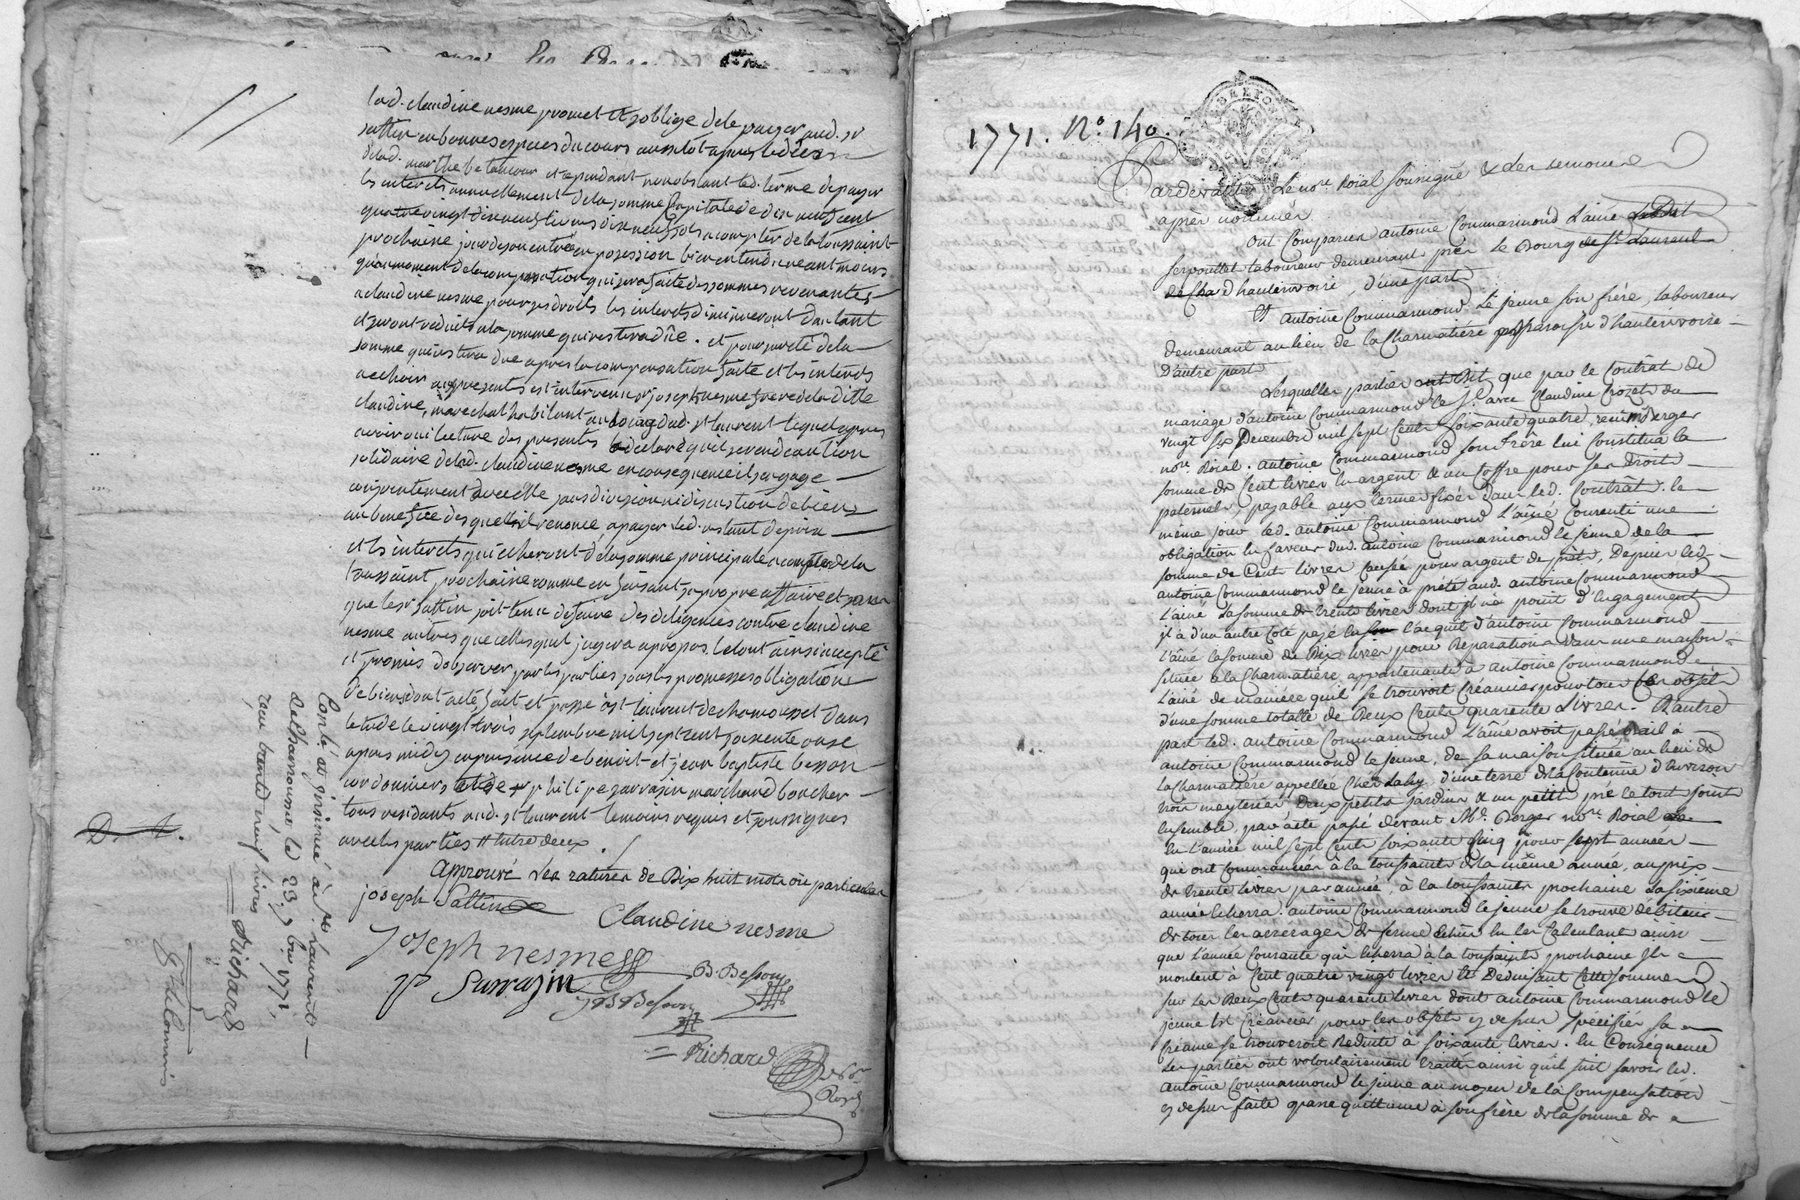 lad. claudine nesme promet et soblige de le payer aud. sr
sattin en bonnes especes du cours aussitot apres le déces
de lad. marthe betancour et cependant nonobstant led. terme de payer
les interets annuellement de la somme capitale de dix neuf cent
quatrevingt dix neuf livres dix neuf sols a compter de la toussaint
prochaine jour de son entrée en possession bien entendu neantmoins
quau moment de la compensation qui sera faite des sommes revenantes
a claudine nesme pour ses droits les interets diminueront dautant
et seront reduits a la somme qui restera dûe. et pour sureté de la
somme qui restera due apres la compensation faite et les interets
a echoir aux presentes est intervenu sr joseph nesme frere de la ditte
claudine, marechal habitant au bourg dud. st laurent lequel apres
avoir oui lecture des presentes a declaré quil se rend caution
solidaire de lad. claudine nesme en consequence il sengage
conjointement avec elle sans division ni discution de biens
au benefice desquels il renonce a payer led. restant de prix
et les interets qui echeront de la somme principale a compter de la
toussaint prochaine comme en faisant sa propre affaire et sans
que le sr sattin soit tenu de faire des deligences contre claudine
nesme autres que celles quil jugera apropos. le tout ainsi accepté
et promis dobserver par les parties sous les promesses obligation
de biens dont acte, fait et passé a st laurent de chamousset dans
letude le vingt trois septembre mil sept cent soixante onze
apres midy en presence de benoit et jean baptiste besson
cordonniers et de sr philipe sarrasin marchand boucher
tous residants aud. st laurent temoins requis et soussignes
avec les parties
Approuvé les ratures de Dix huit mots
joseph Sattin
Claudine nesme
joseph nesme
P Sarrazin
B. Besson
J B Besson
Richard
Conlé et
à St. Laurent
de Chamousset le 23. 7bre 1771,
reçu trente neuf livres
Richard
1771. No. 140.
Pardevant Le nore. Roïal soussigné & les temoins
apres nommés
ont Comparu antoine Commarmond L'ainé
laboureur demeurant près le Bourg
d'hauterivoire, d'une part
Et antoine Commarmond Le jeune son frère, laboureur
demeurant au lieu de la Charmatière paroisse d'hauterivoire
d'autre part
Lesquelles parties ont Dit que par le Contrat de
mariage d'antoine Commarmond le J. avec Claudine Crozet du
vingt six Decembre mil sept Cent soixante quatre, reçu Me Berger
nore. Roïal. antoine Commarmond son frère lui Constitua la
somme de Cent livres en argent & un Coffre pour ses droits
paternels, payable aux termes fixés dans led. Contrat. le
même jour led. antoine Commarmond L'ainé Consentit une
obligation en faveur dud. antoine Commarmond le jeune de la
somme de Cent livres Causée pour argent de prêt, Depuis led.
antoine Commarmond le jeune à prété aud. antoine Commarmond
L'ainé la somme de trente livres dont il n'a point d'Engagement
il a d'un autre Coté payé l'acquit d'antoine Commarmond
L'ainé la somme de Dix livres pour Reparations dans une maison
située a la Charmatière, appartenante à antoine Commarmond
L'ainé de manière quil se trouvoit Créancier pour tous Ces objets
d'une somme totalle de Deux Cents quarente Livres. D'autre
part led. antoine Commarmond L'ainé avoit passé Bail à
antoine Commarmond le jeune, de sa maison située au lieu de
la Charmatière appellée Chez Laby, d'une terre de la Contenue d'Environ
deux petits jardins & un petit pré le tout joint
Ensemble, par acte passé devant Me. Berger nore. Roial
En L'année mil sept Cent soixante Cinq pour sept années
qui ont Commencées à la toussaints de la même année, au prix
de trente livres par année, à la toussaints prochaine La sixième
année Echerra. antoine Commarmond le jeune se trouve débiteur
de tous les arrerages de ferme Echus En les Calculant ainsi
que l'année Courante qui Echerra à la toussaints prochaine Ils
montent à Cent quatre vingt livres Et Deduisant Cette somme
sur Les Deux Cents quarente livres dont antoine Commarmond le
jeune Est Créancier pour les objets cy dessus spécifiés sa
Créance se trouveroit Reduite à soixante livres. En Consequence
Les parties ont volontairement traité ainsi quil suit savoir led.
antoine Commarmond le jeune au moyen de la Compensation
cy dessus faite passe quittance à son frère de la somme de